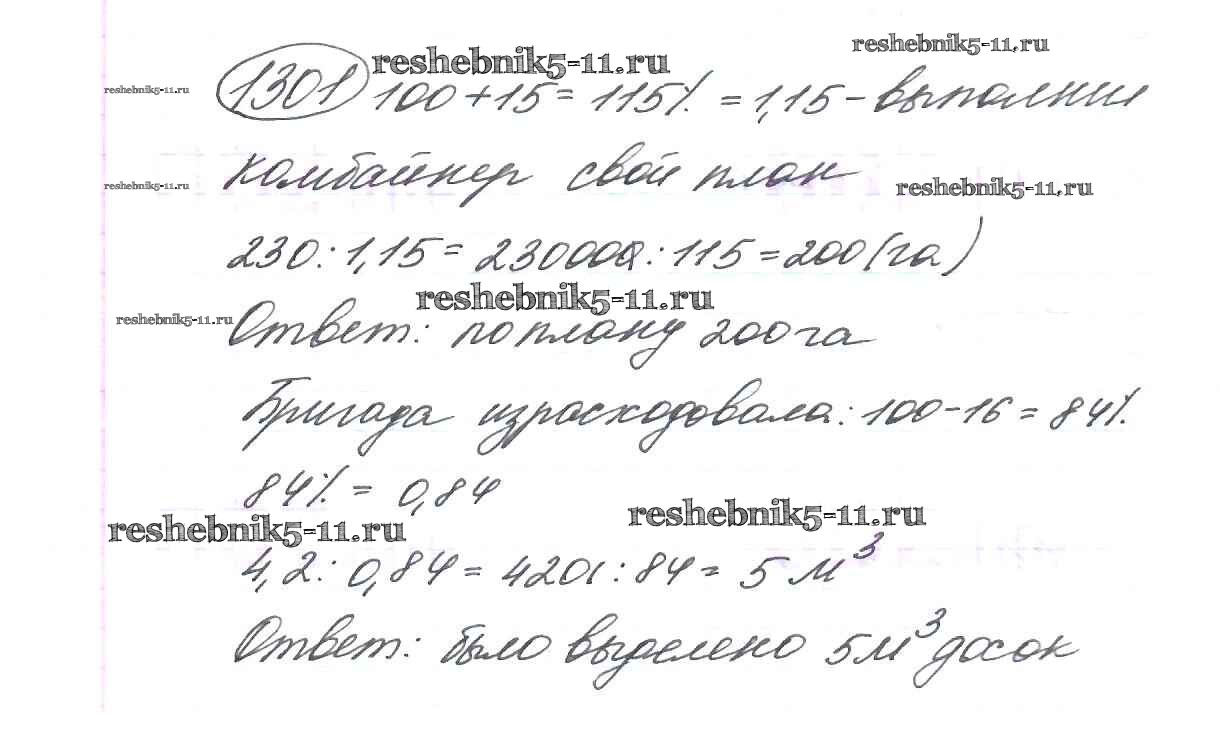 reshebnik5-11.ru
reshebnik5-11.ru
reshebnik5-11.ru
1301 100+15=115%=1,15-выполнил
комбайнер свой план
reshebnik5-11.ru
reshebnik5-11.ru
230:1,15= 23000:115=200(га)
reshebnik5-11.ru
reshebnik5-11.ru
Ответ: по плану 200га
Бригада израсходовала: 100-16=84%
84% = 0,84
reshebnik5-11.ru
reshebnik5-11.ru
4,2:0,84=420:84= 5 м³
Ответ: было выделено 5м³ досок